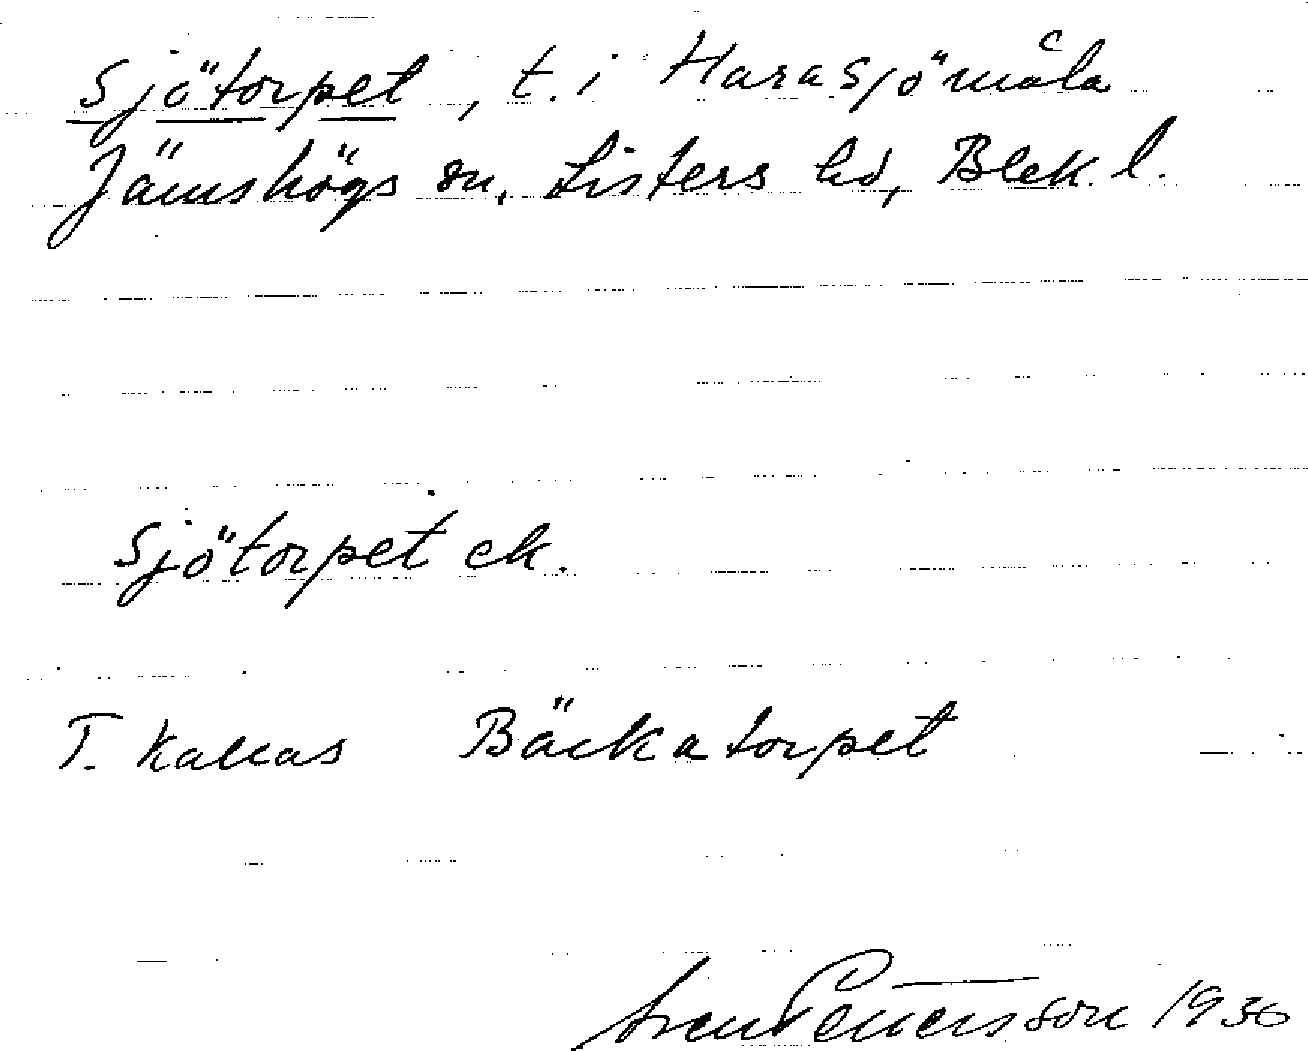 Sjötorpet, t. i Harasjömåla
Jämshögs sn, Listers hd, Blek. l.
Sjötorpet ek.
T. kallas Bäckatorpet
Sven Pettersson 1930